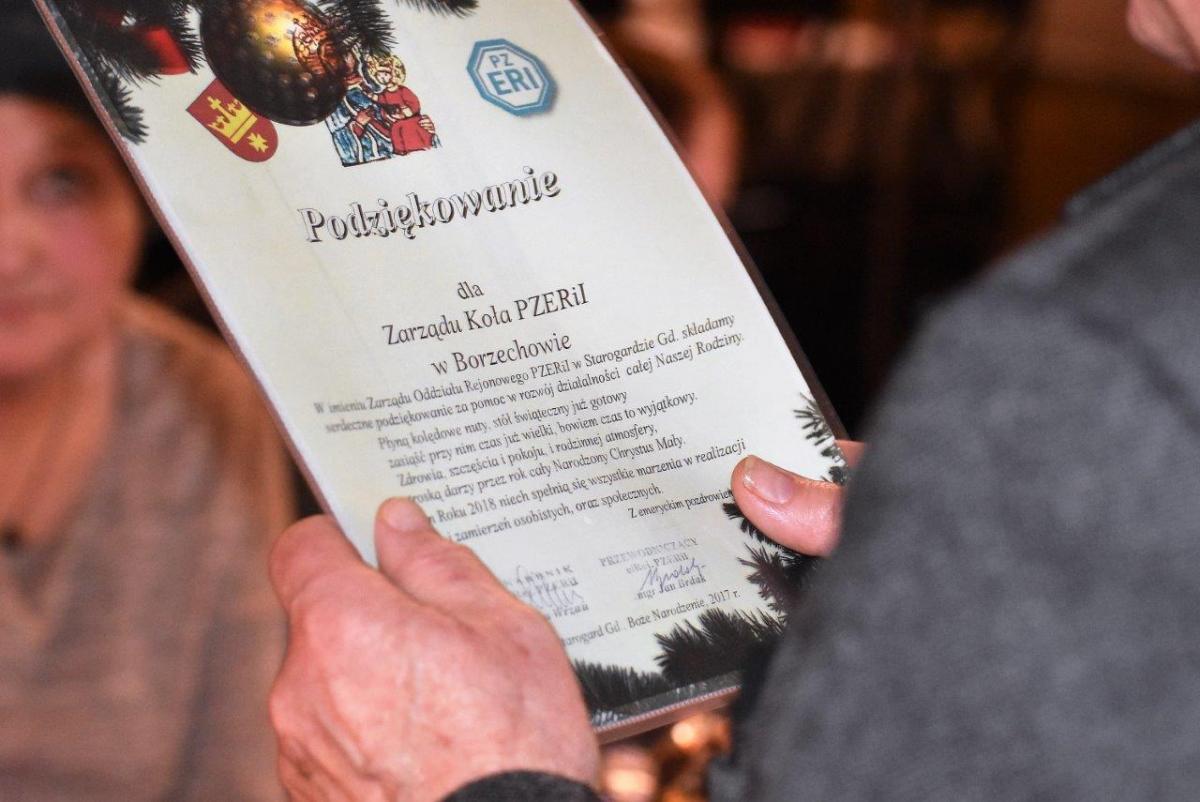 PZ
ERI
Podziękowanie
dla
Zarządu Koła PZERiI
w Borzechowie
W imieniu Zarządu Oddziału Rejonowego PZERiI w Starogardzie Gd. składamy
serdeczne podziękowanie za pomoc w rozwój działalności całej Naszej Rodziny.
Płyną kolędowe nuty, stół świąteczny już gotowy
zasiąść przy nim czas już wielki, bowiem czas to wyjątkowy.
Zdrowia, szczęścia i pokoju, i rodzinnej atmosfery,
troską darzy przez rok cały Narodzony Chrystus Mały.
Roku 2018 niech spełnią się wszystkie marzenia w realizacji
i zamierzeń osobistych, oraz społecznych.
Z emeryckim
PRZEWODNICZĄCY
PZERiI
mgr Jan Brdak
Gd. Boże Narodzenie, 2017 r.